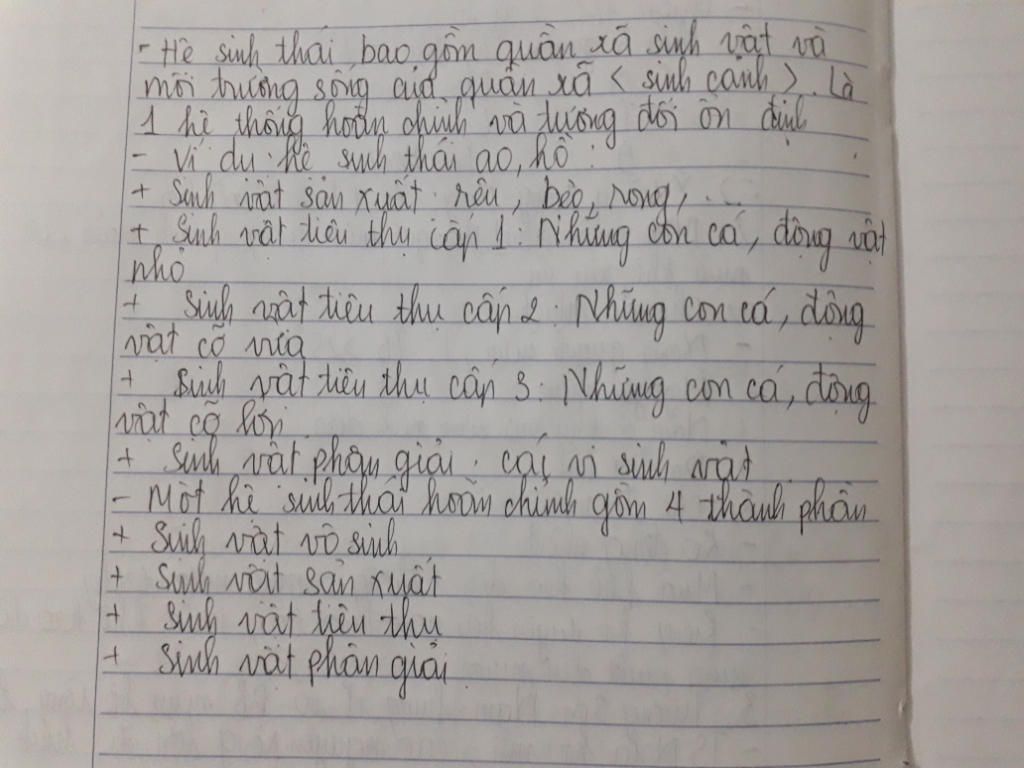 - Hê sinh thái, bao gồm quần xã sinh vật và
môi trường sống của quần xã < sinh cảnh >. Là
1 hệ thống hoàn chỉnh và tương đối ổn định
- Ví dụ: hệ sinh thái ao, hồ :
+ Sinh vật sản xuất: rêu, bèo, rong, ...
+ Sinh vật tiêu thụ cấp 1: Những con cá, động vật
nhỏ
+ Sinh vật tiêu thụ cấp 2: Những con cá, động
vật cỡ vừa
+ Sinh vật tiêu thụ cấp 3: Những con cá, động
vật cỡ lớn
+ Sinh vật phân giải: các vi sinh vật
- Một hệ sinh thái hoàn chỉnh gồm 4 thành phần
+ Sinh vật vô sinh
+ Sinh vật sản xuất
+ Sinh vật tiêu thụ
+ Sinh vật phân giải